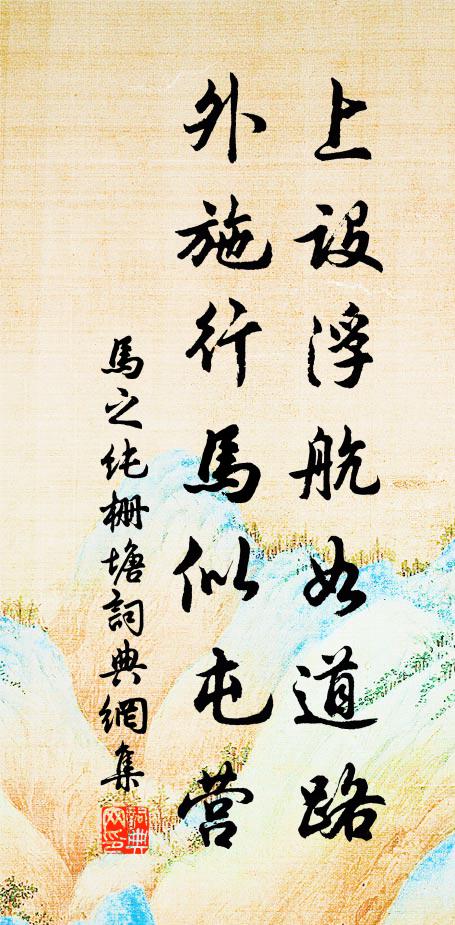 上设浮航如道路
外施行馬似屯营
馬之纯栅塘詞典網集
詞典
网印